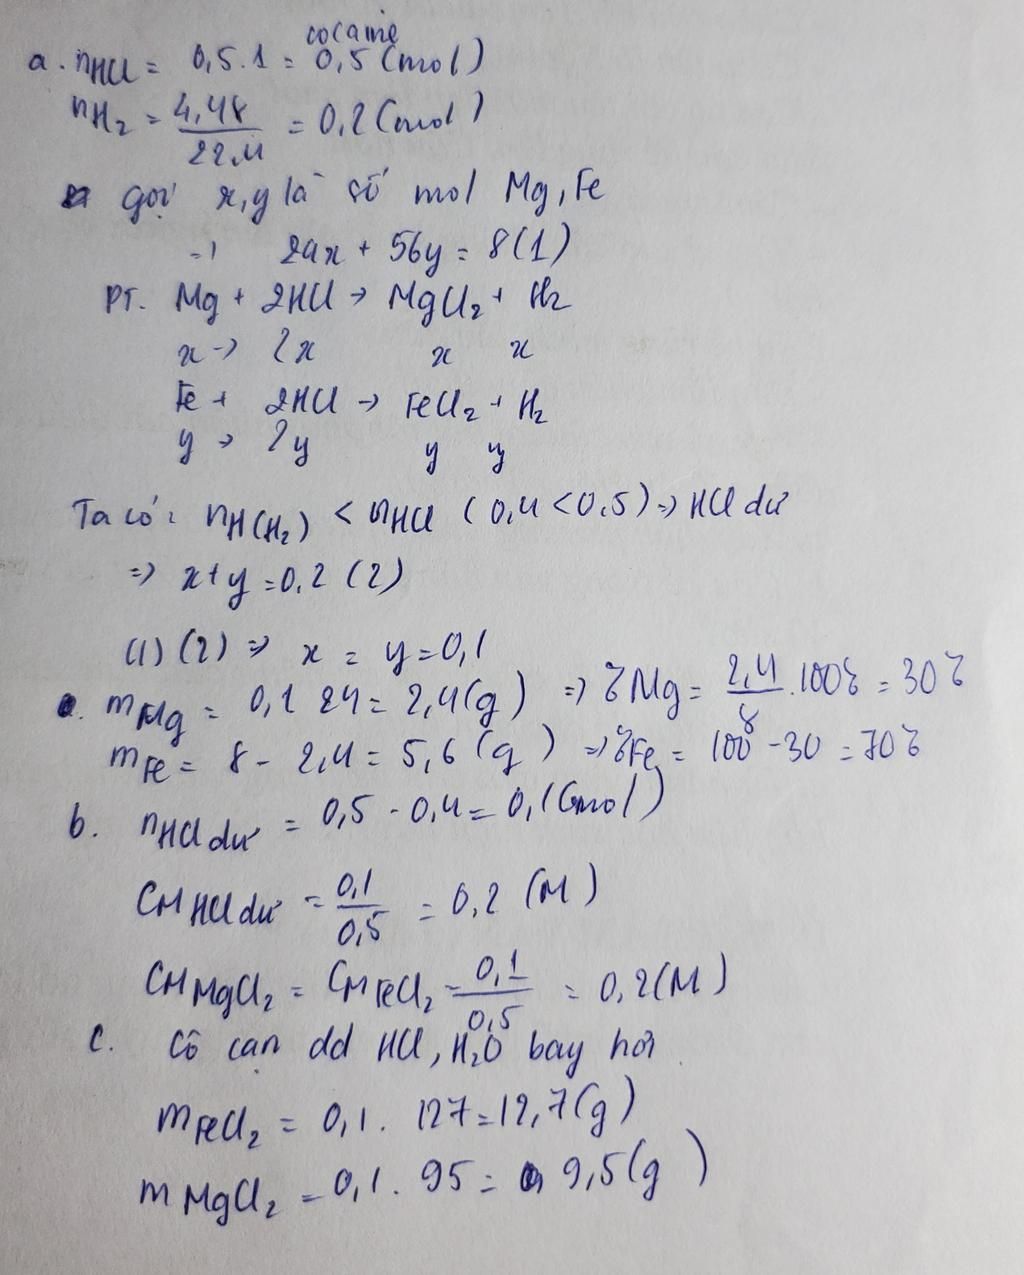 cocaine
a. nHCl = 0,5.1 = 0,5 (mol)
nH2 = 4,48/22,4 = 0,2 (mol)
gọi x,y là số mol Mg, Fe
=> 24x + 56y = 8 (1)
PT. Mg + 2HCl → MgCl2 + H2
x → 2x x x
Fe + 2HCl → FeCl2 + H2
y → 2y y y
Ta có: nH(H2) < nHCl (0,4 < 0,5) => HCl dư
=> x+y = 0,2 (2)
(1) (2) => x = y = 0,1
mMg = 0,1 24 = 2,4 (g) => %Mg = 2,4/8 .100% = 30%
mFe = 8 - 2,4 = 5,6 (g) => %Fe = 100 - 30 = 70%
b. nHCl dư = 0,5 - 0,4 = 0,1 (mol)
CM HCl dư = 0,1/0,5 = 0,2 (M)
CM MgCl2 = CM FeCl2 = 0,1/0,5 = 0,2 (M)
c. Cô cạn dd HCl, H2O bay hơi
mFeCl2 = 0,1 . 127 = 12,7 (g)
mMgCl2 = 0,1 . 95 = 9,5 (g)